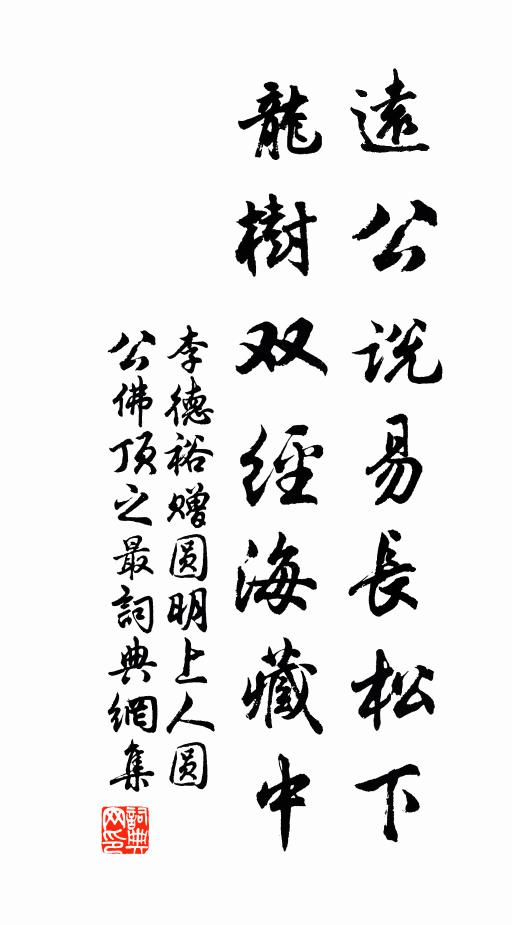 遠公说易長松下
龍樹双經海藏中
李德裕赠圆明上人圆
公佛顶之最詞典網集
詞典网印